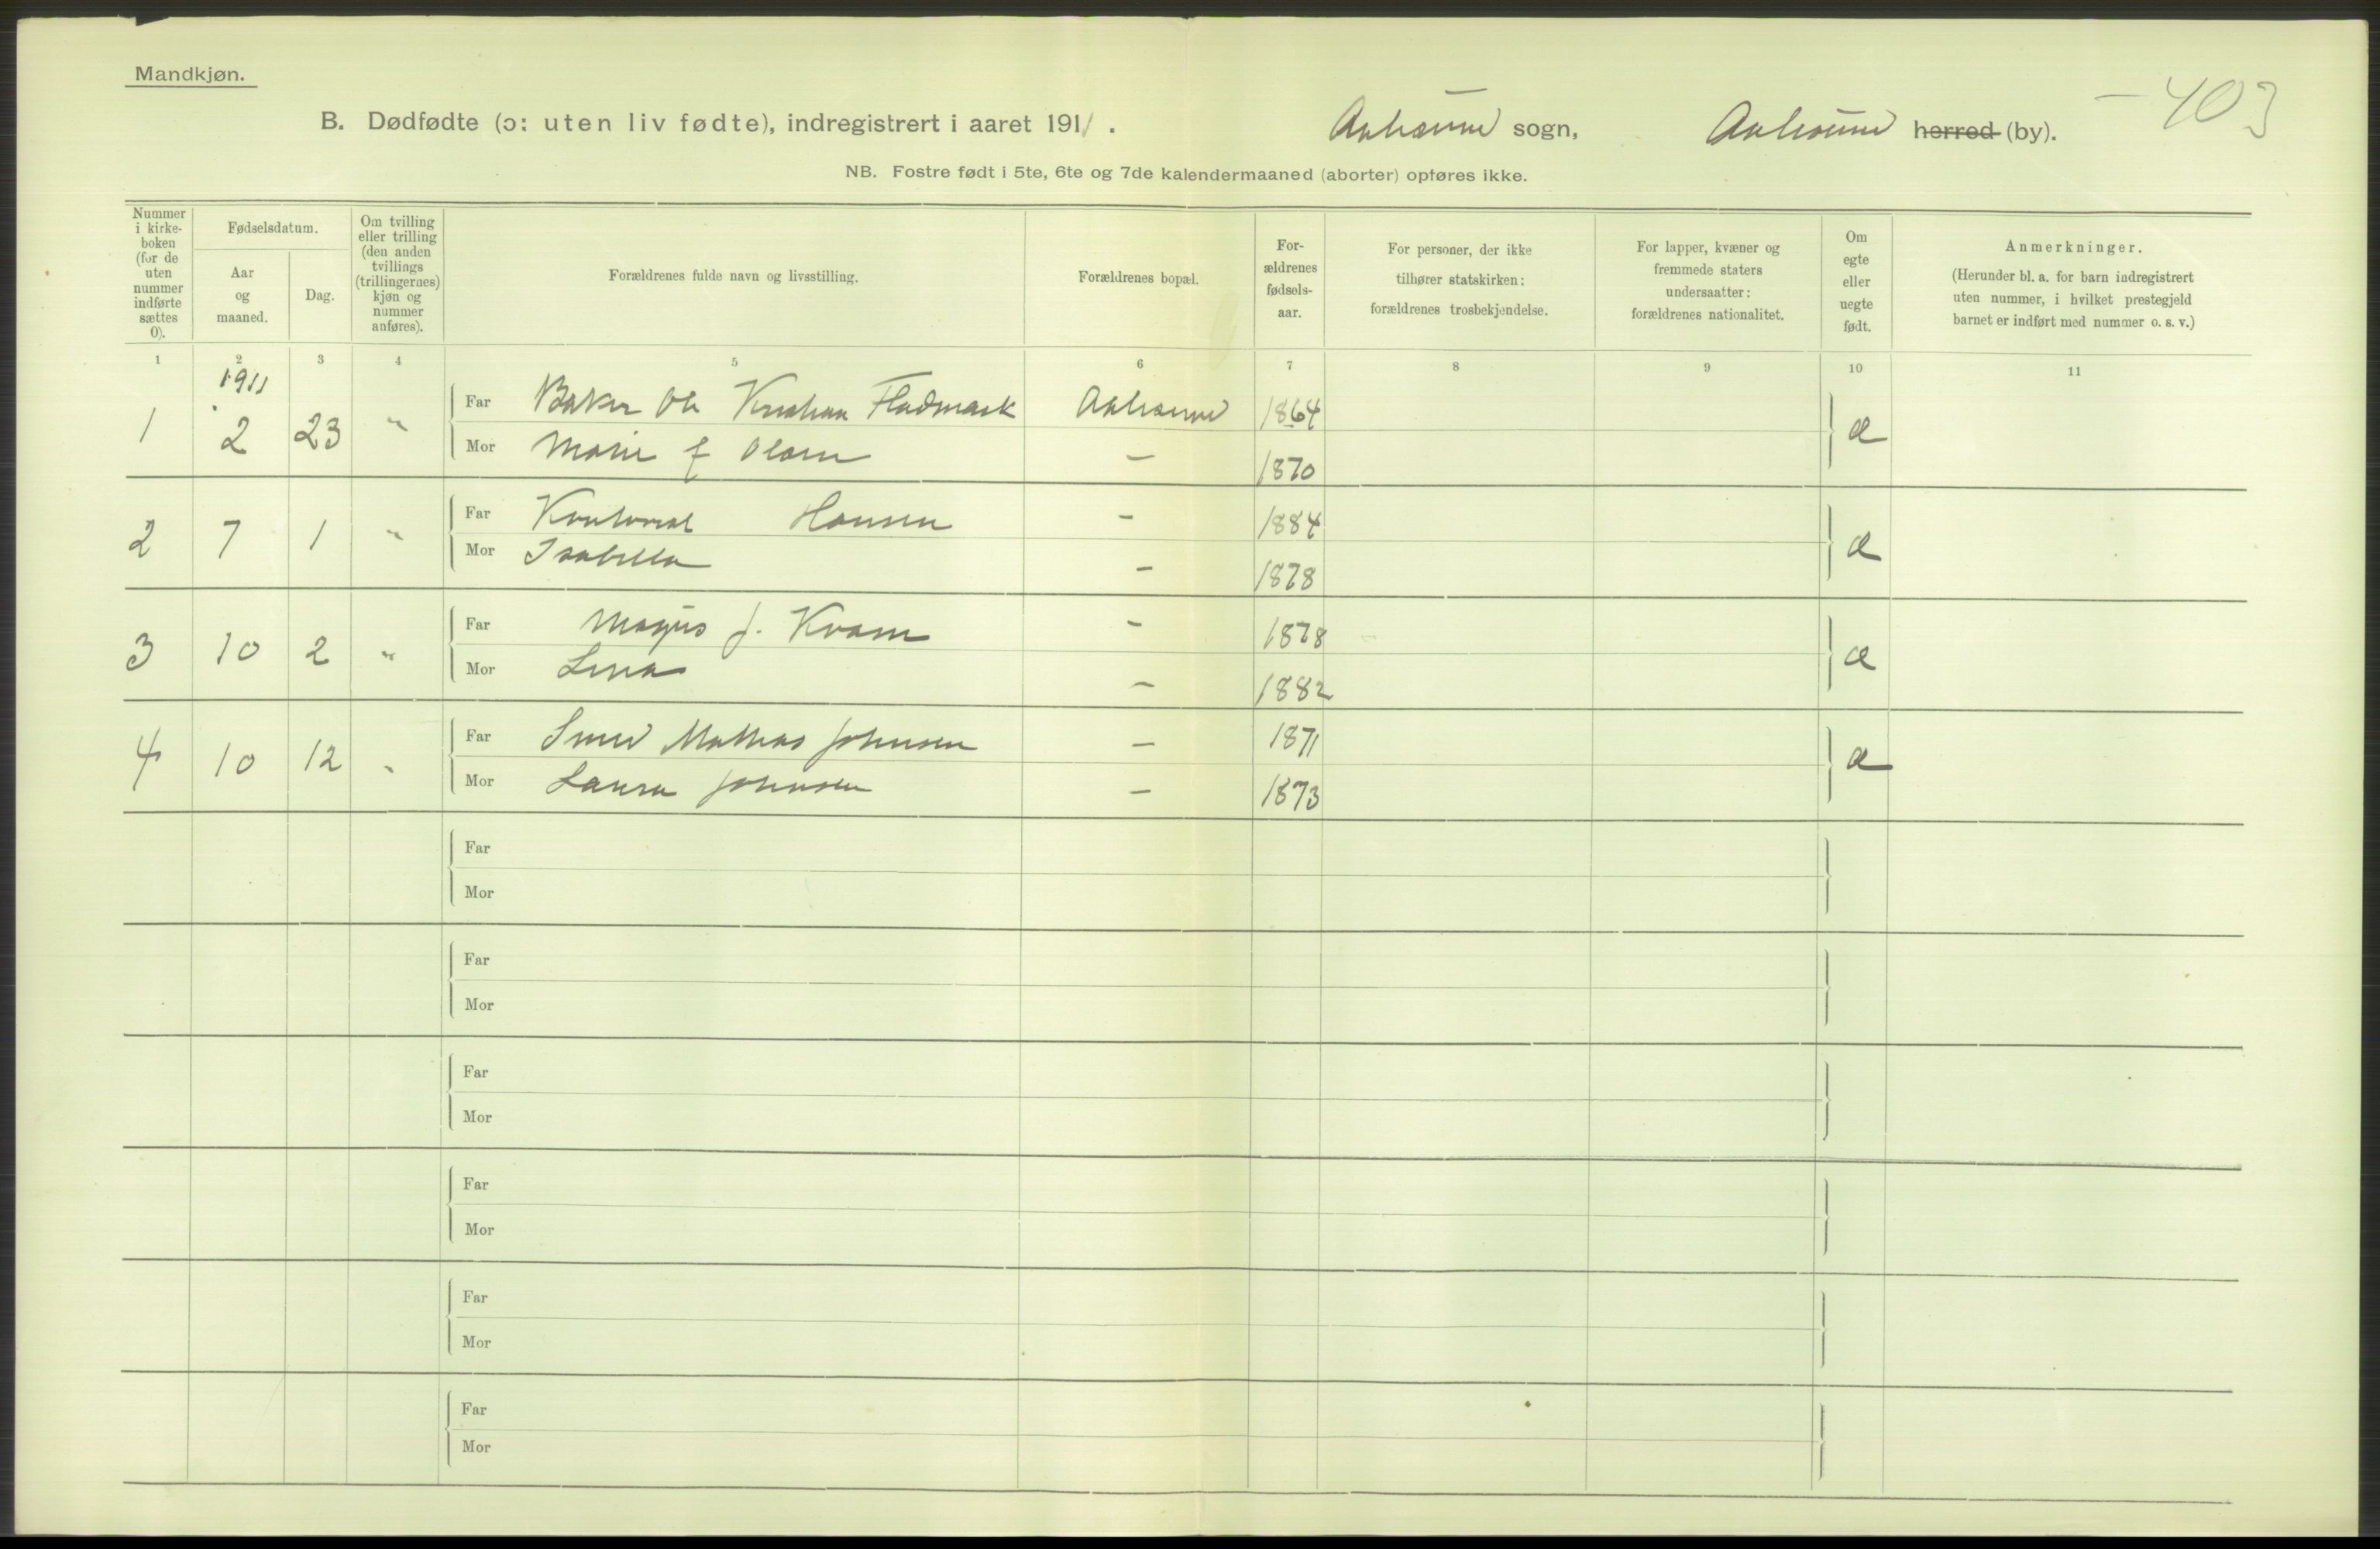 Mandkjøn.
B. Dødfødte (ɔ: uten liv fødte), indregistrert i aaret 1911. Aalesund sogn, Aalesund herred (by). 403
NB. Fostre født i 5te, 6te og 7de kalendermaaned (aborter) opføres ikke.
Nummer i kirkeboken (for de uten nummer indførte sættes 0).
Fødselsdatum.
Aar og maaned.
Dag.
Om tvilling eller trilling (den anden tvillings (trillingernes) kjøn og nummer anføres).
Forældrenes fulde navn og livsstilling.
Forældrenes bopæl.
Forældrenes fødselsaar.
For personer, der ikke tilhører statskirken: forældrenes trosbekjendelse.
For lapper, kvæner og fremmede staters undersaatter: forældrenes nationalitet.
Om egte eller uegte født.
Anmerkninger. (Herunder bl. a. for barn indregistrert uten nummer, i hvilket prestegjeld barnet er indført med nummer o. s. v.)
1 2 3 4 5 6 7 8 9 10 11
1911
1 2 23 " Far Baker Ole Kristian Fladmark Aalesund 1864 æ
Mor Marie f Olsen — 1870
2 7 1 " Far Kontorist Hansen — 1884 æ
Mor Isabella — 1878
3 10 2 " Far Magnus J. Kvam — 1878 æ
Mor Lina — 1882
4 10 12 " Far Smed Mathias Johnsen — 1871 æ
Mor Laura Johnsen — 1873
Far
Mor
Far
Mor
Far
Mor
Far
Mor
Far
Mor
Far
Mor